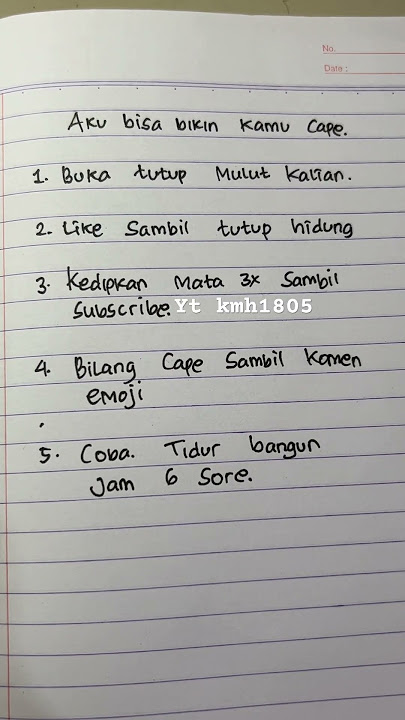 No.
Date :
Aku bisa bikin kamu Cape.
1. Buka tutup Mulut Kalian.
2. Like Sambil tutup hidung
3. Kedipkan Mata 3x Sambil
Subscribe. Yt kmh1805
4. Bilang Cape Sambil Komen
emoji
5. Coba. Tidur bangun
Jam 6 Sore.